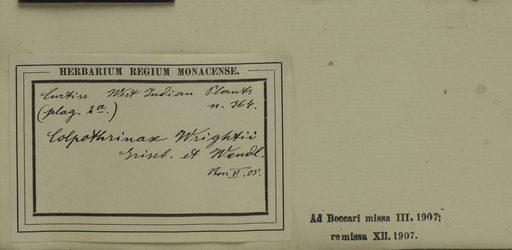 HERBARIUM REGIUM MONACENSE.
Curtiss West Indian Plants
(plag. 2a.) n. 364.
Colpothrinax Wrightii
Griseb. et Wendl.
VI. 05.
Ad Beccari missa III. 1907;
remissa XII. 1907.